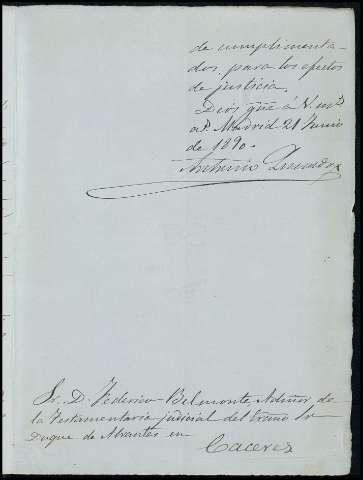 de cumplimenta-
dos para los efectos
de justicia.
Dios gũe á V. m.ˢ
a.ˢ Madrid 21 Junio
de 1890.
Antonio
Sr. D. Federico Belmonte Admor de
la Testamentaria judicial del Excmo Sr
Duque de Abrantes en
Caceres